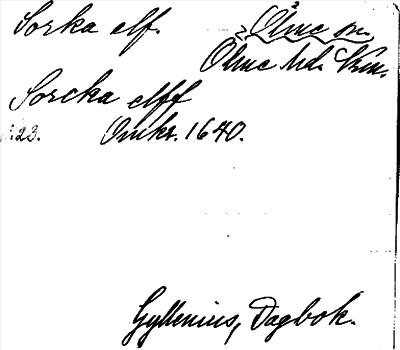 Sorka elf. Ölme sn.
Ölme hd. Vrm.
Sorcka elff
123. Omkr. 1640.
Gyllenius, Dagbok.